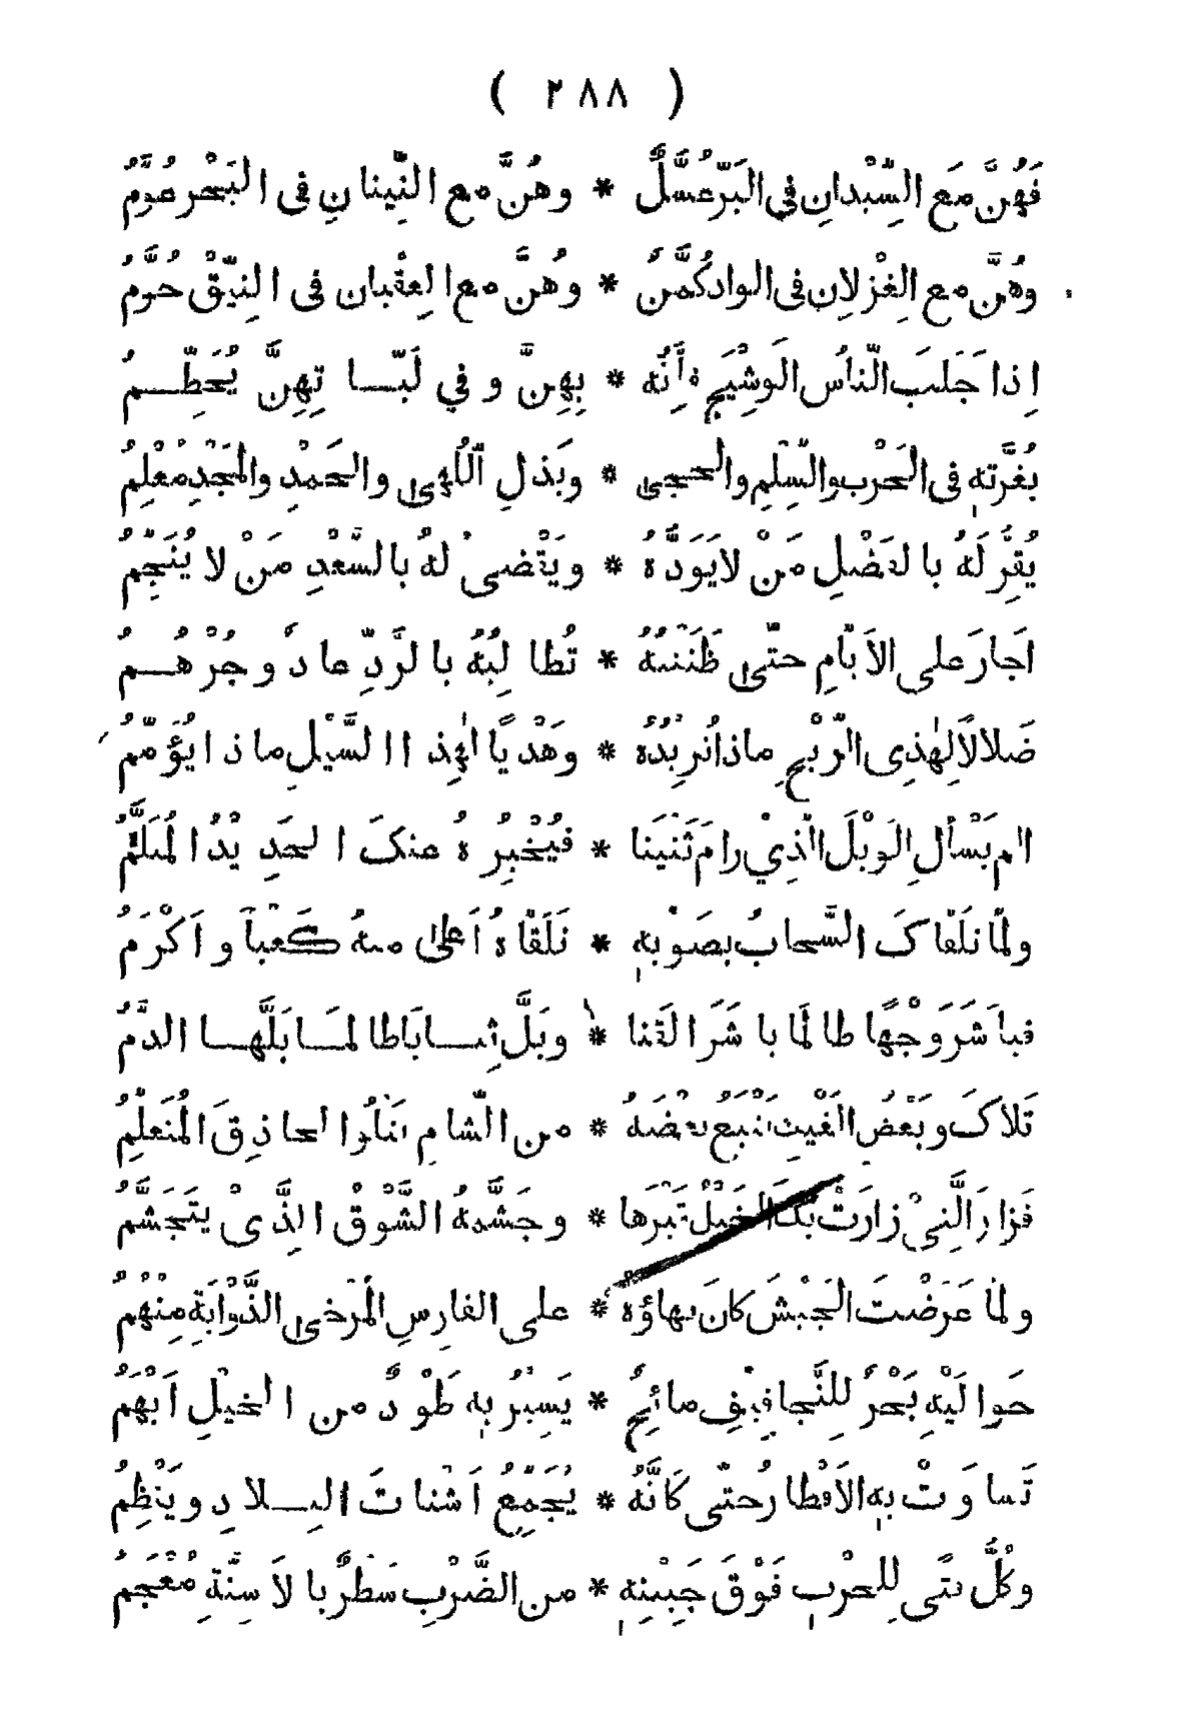 ( ٢٨٨ )
فَهُنَّ مَعَ السِّبْدانِ فى البَرِّ عُسَّلٌ * وهُنَّ مع النِّينانِ فى البَحْرِ عُوَّمُ
وهُنَّ مع الغِزْلانِ فى الوادِ كُمَّنٌ * وهُنَّ مع العِقْبان فى النِّيْقِ حُوَّمُ
اِذا جَلَبَ النّاسُ الوَشِيْجَ فأنَّه * بِهِنَّ وفي لَبّاتِهِنَّ يُحَطِّمُ
بُغُرَّتهِ فى الحَرْبِ والسِّلْمِ والحجى * وبَذلِ اللُّهى والحَمْدِ والمَجْدِ مُعْلِمُ
يُقِرُّ لَهُ بالفَضْلِ مَنْ لا يَوَدُّهُ * ويَقْضى لهُ بالسَّعْدِ مَنْ لا يُنَجِّمُ
اَجارَ على الاَيّامِ حتّى ظَنَنْتُهُ * تُطالِبُهُ بالرَّدِّ عادٌ وجُرْهُمُ
ضَلالاً لِهٰذِى الرّيْحِ ماذا تُرِيْدُهُ * وهَدْيًا لهٰذا السَّيْلِ ماذا يُؤَمِّمُ
الم يَسْألِ الوَبْلَ الّذِيْ رامَ ثَنْيَنا * فيُخْبِرُهُ عنكَ الحَدِيْدُ المُثَلَّمُ
ولمّا تلَقّاكَ السَّحابُ بصَوْبهِ * تَلَقّاهُ اَعْلى منهُ كَعْباً واَكْرَمُ
فباشَرَ وَجْهًا طالَما باشَرَ القَنا * وبَلَّ ثِيابًا طالَما بَلَّها الدَّمُ
تَلاكَ وبَعْضُ الغَيْثِ يَتْبَعُ بعْضَهُ * من الشّامِ يَتْلُوا الحاذِقَ المُتَعَلِّمُ
فَزارَ الَّتىْ زارَتْ بكَ الخَيْلُ قَبْرَها * وجَشَّمهُ الشَّوْقُ الذَّىْ يتَجَشَّمُ
ولمّا عَرَضْتَ الجَيْشَ كانَ بهاؤهُ * على الفارِسِ المُرْخى الذُّوْابَةِ مِنْهُمُ
حَوالَيْهِ بَحْرٌ للِتَّجافِيْفِ مائِجٌ * يَسِيْرُ بهِ طَوْدٌ من الخيْلِ اَيْهَمُ
تَساوَتْ بهِ الاَقْطارُ حتّى كَانَّهُ * يُجَمِّعُ اَشْتاتَ البِلادِ ويَنْظِمُ
وكُلُّ فتًى لِلحرْبِ فَوْقَ جَبِيْنِهِ * من الضَّرْبِ سَطْرٌ بالاَسِنَّةِ مُعْجَمُ